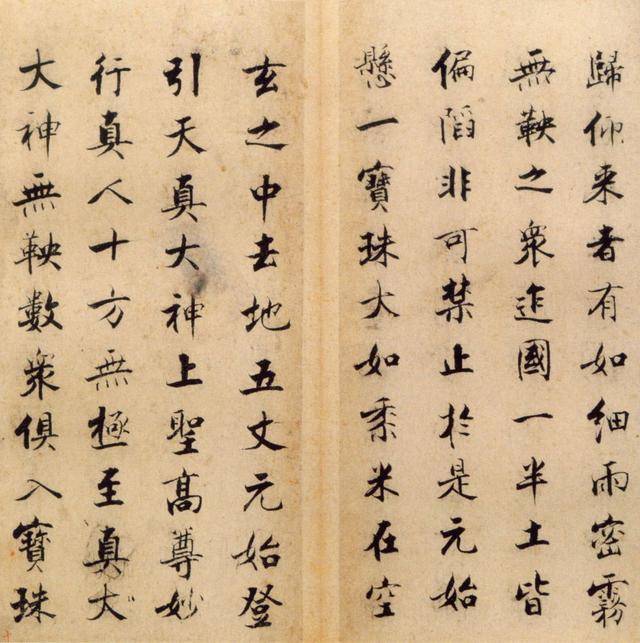 歸仰来者有如細雨密霧
無鞅之衆迮國一半土皆
偏陷非可禁止於是元始
懸一寶珠大如黍米在空
玄之中去地五丈元始登
引天真大神上聖髙尊妙
行真人十方無極至真大
大神無鞅數衆俱入寶珠